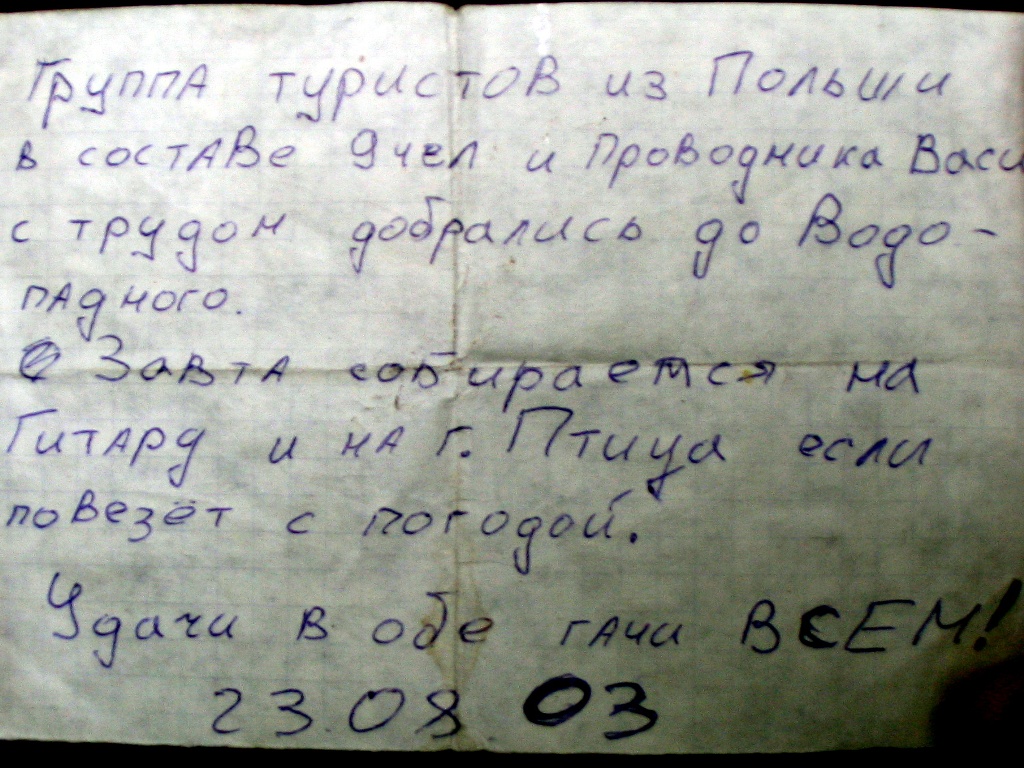 Группа туристов из Польши
в составе 9 чел и проводника Васи
с трудом добрались до Водо-
падного.
Завта собирается на
Гитару и на г. Птица если
повезёт с погодой.
Удачи в обе гачи ВСЕМ!
23.08 03